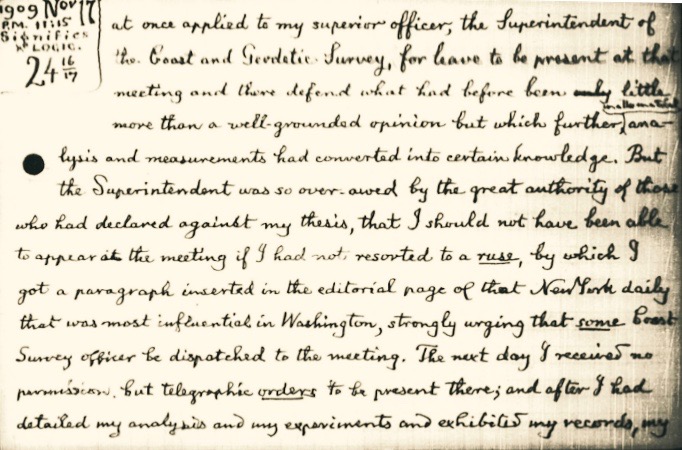 1909 Nov 17
P.M. 11:15
Significs
& LOGIC.
24 16/17
at once applied to my superior officer, the Superintendent of
the Coast and Geodetic Survey, for leave to be present at that
meeting and there defend what had before been only little
mathematical
more than a well-grounded opinion but which further, ana-
lysis and measurements had converted into certain knowledge. But
the Superintendent was so over-awed by the great authority of those
who had declared against my thesis, that I should not have been able
to appear at the meeting if I had not resorted to a ruse, by which I
got a paragraph inserted in the editorial page of that New York daily
that was most influential in Washington, strongly urging that some Coast
Survey officer be dispatched to the meeting. The next day I received no
permission, but telegraphic orders to be present there; and after I had
detailed my analysis and my experiments and exhibited my records, my